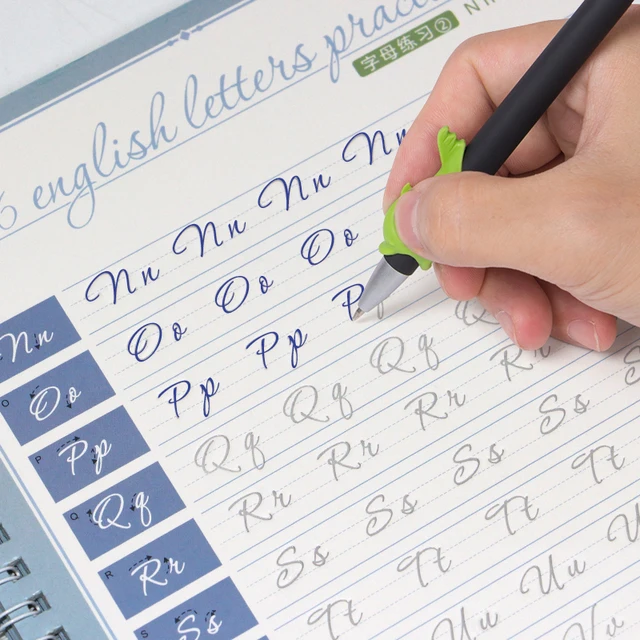 6 english letters prac
字母练习②
Nn Nn Nn Nn Nn
Oo Oo Oo Oo
Pp Pp Pp P
Qq Qq Qq Qq
Rr Rr Rr Rr Rr
Ss Ss Ss Ss Ss
Tt Tt Tt Tt
Uu Uu